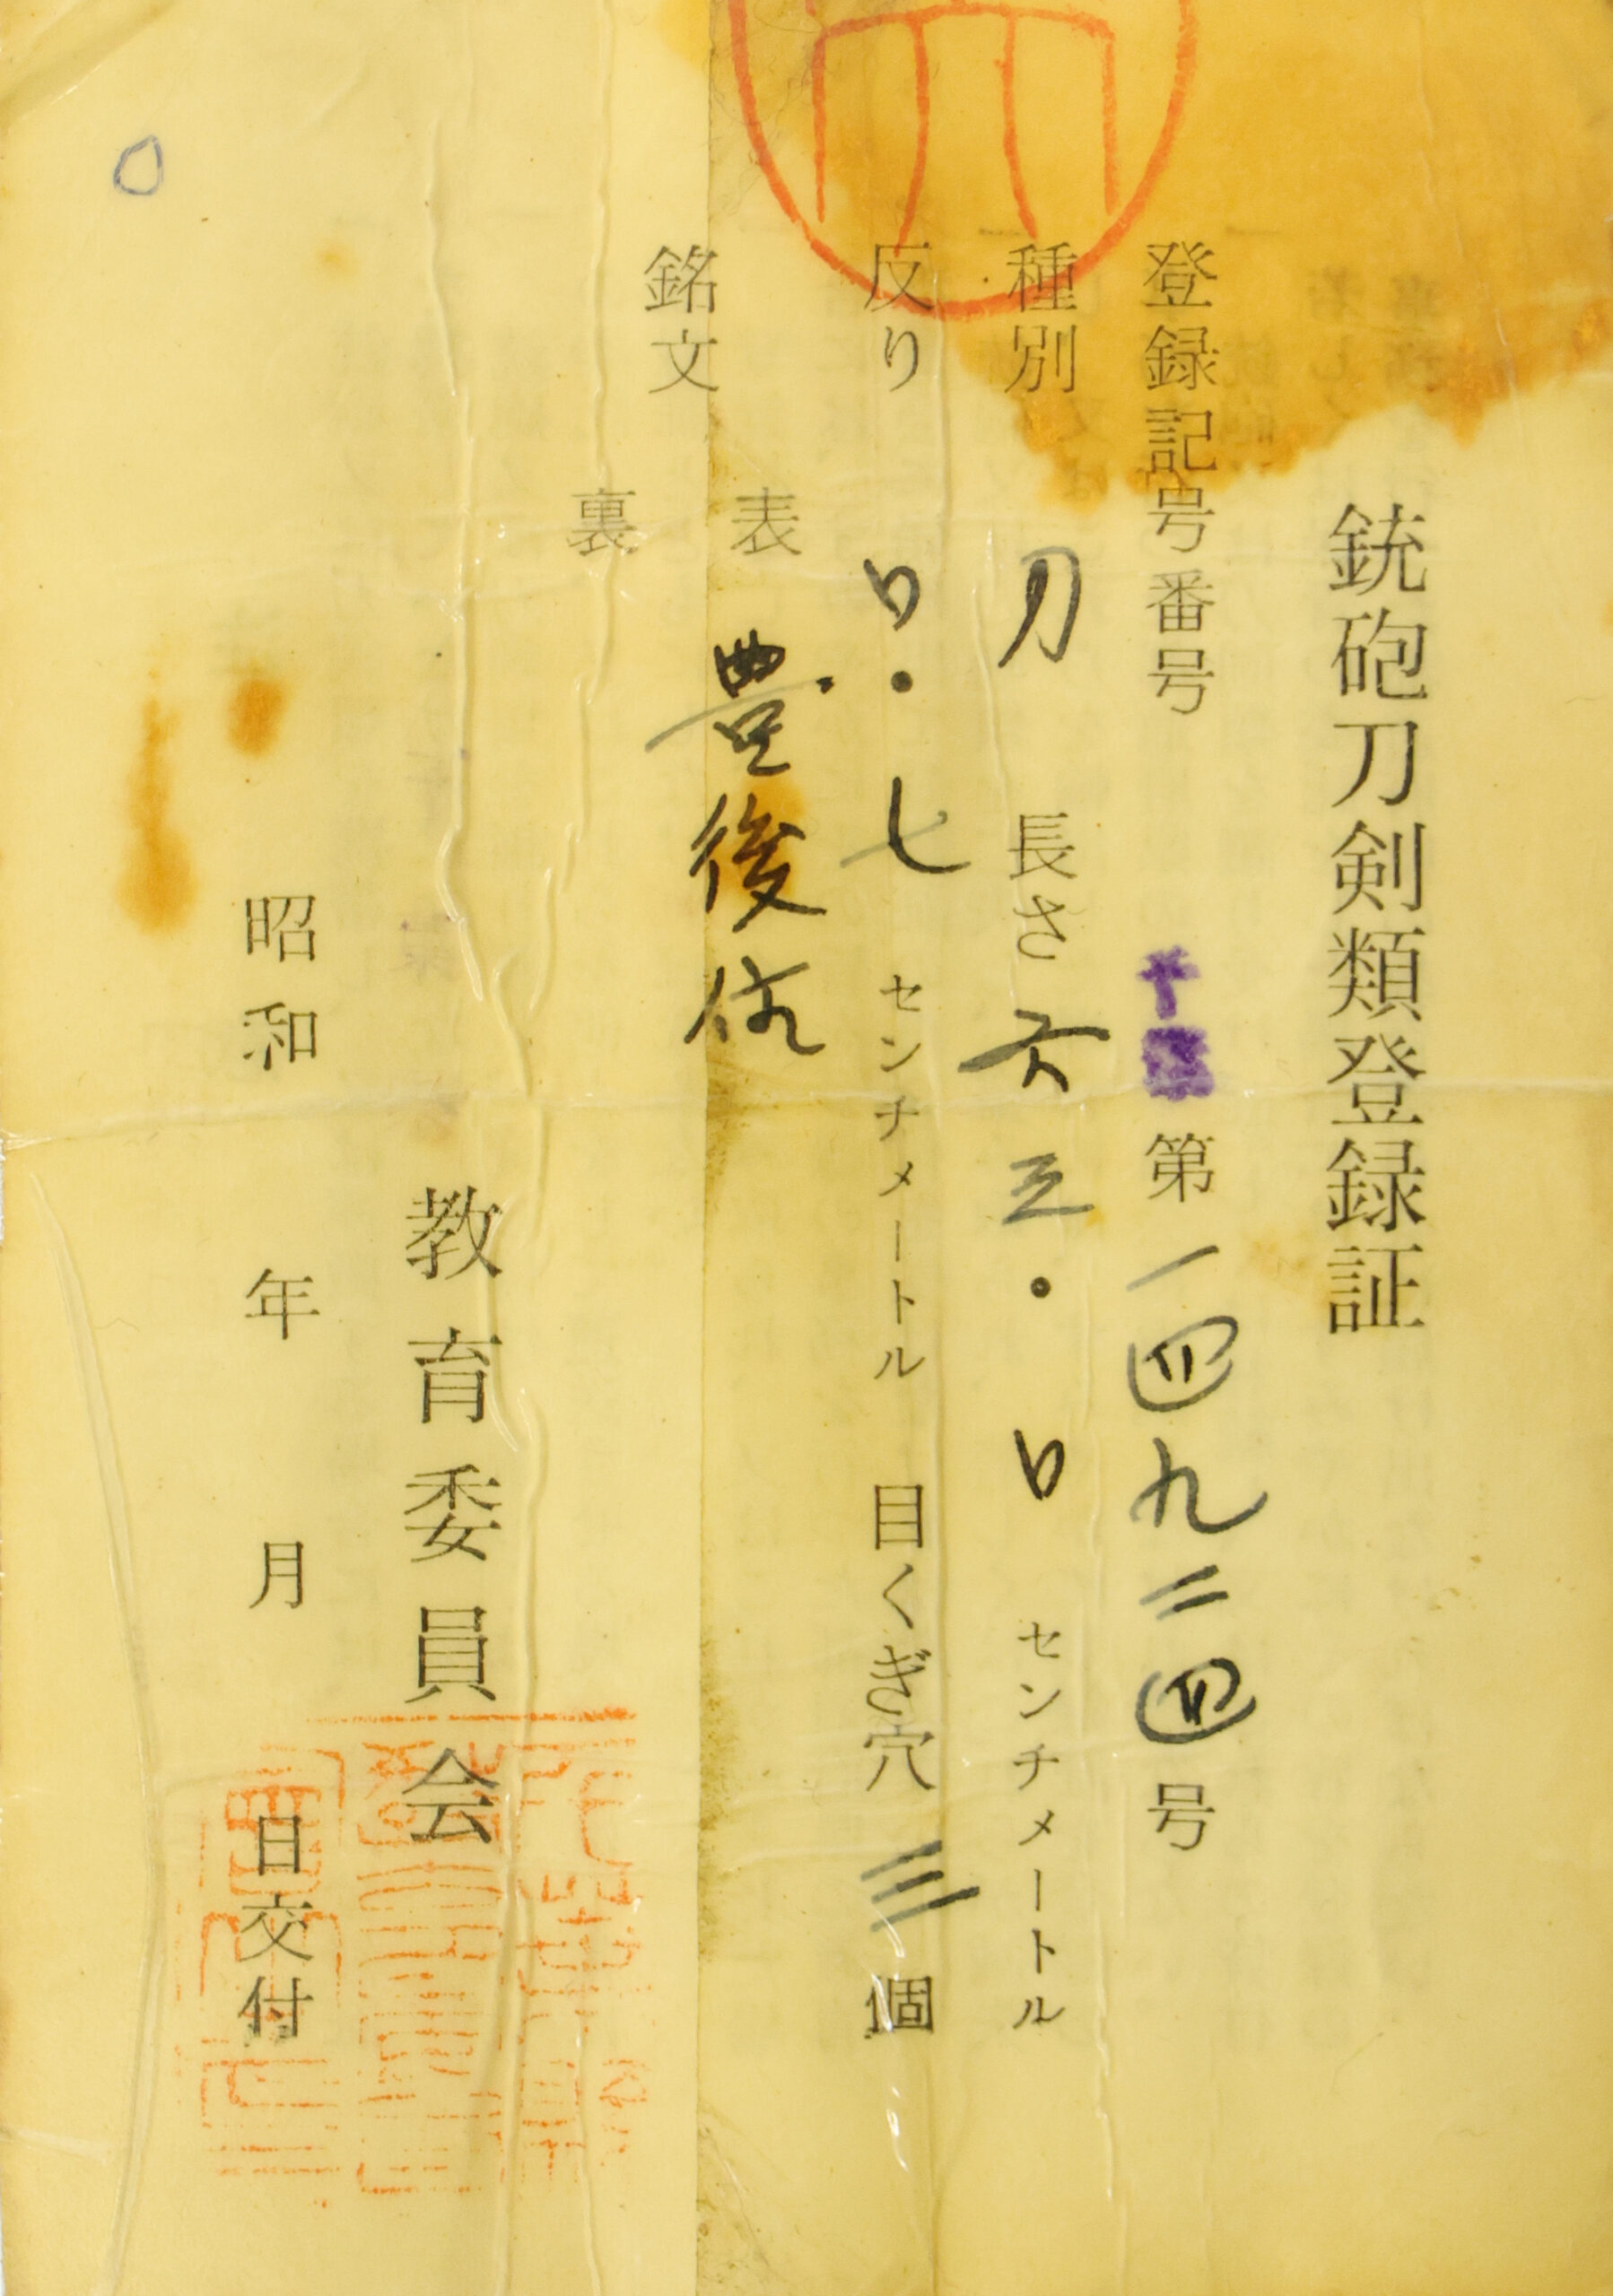 銃砲刀剣類登録証
登録記号番号 第一四九二四号
種別 刀 長さ 六五・〇 センチメートル
反り 〇・七 センチメートル 目くぎ穴 三 個
銘文 表 豊後住
裏
教育委員会
昭和 年 月 日交付